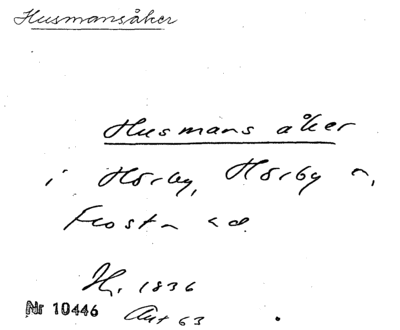 Husmansåker
Husmans åker
i Hörby, Hörby sn,
Frosta hd
H. 1836
Nr 10446
Akt 63